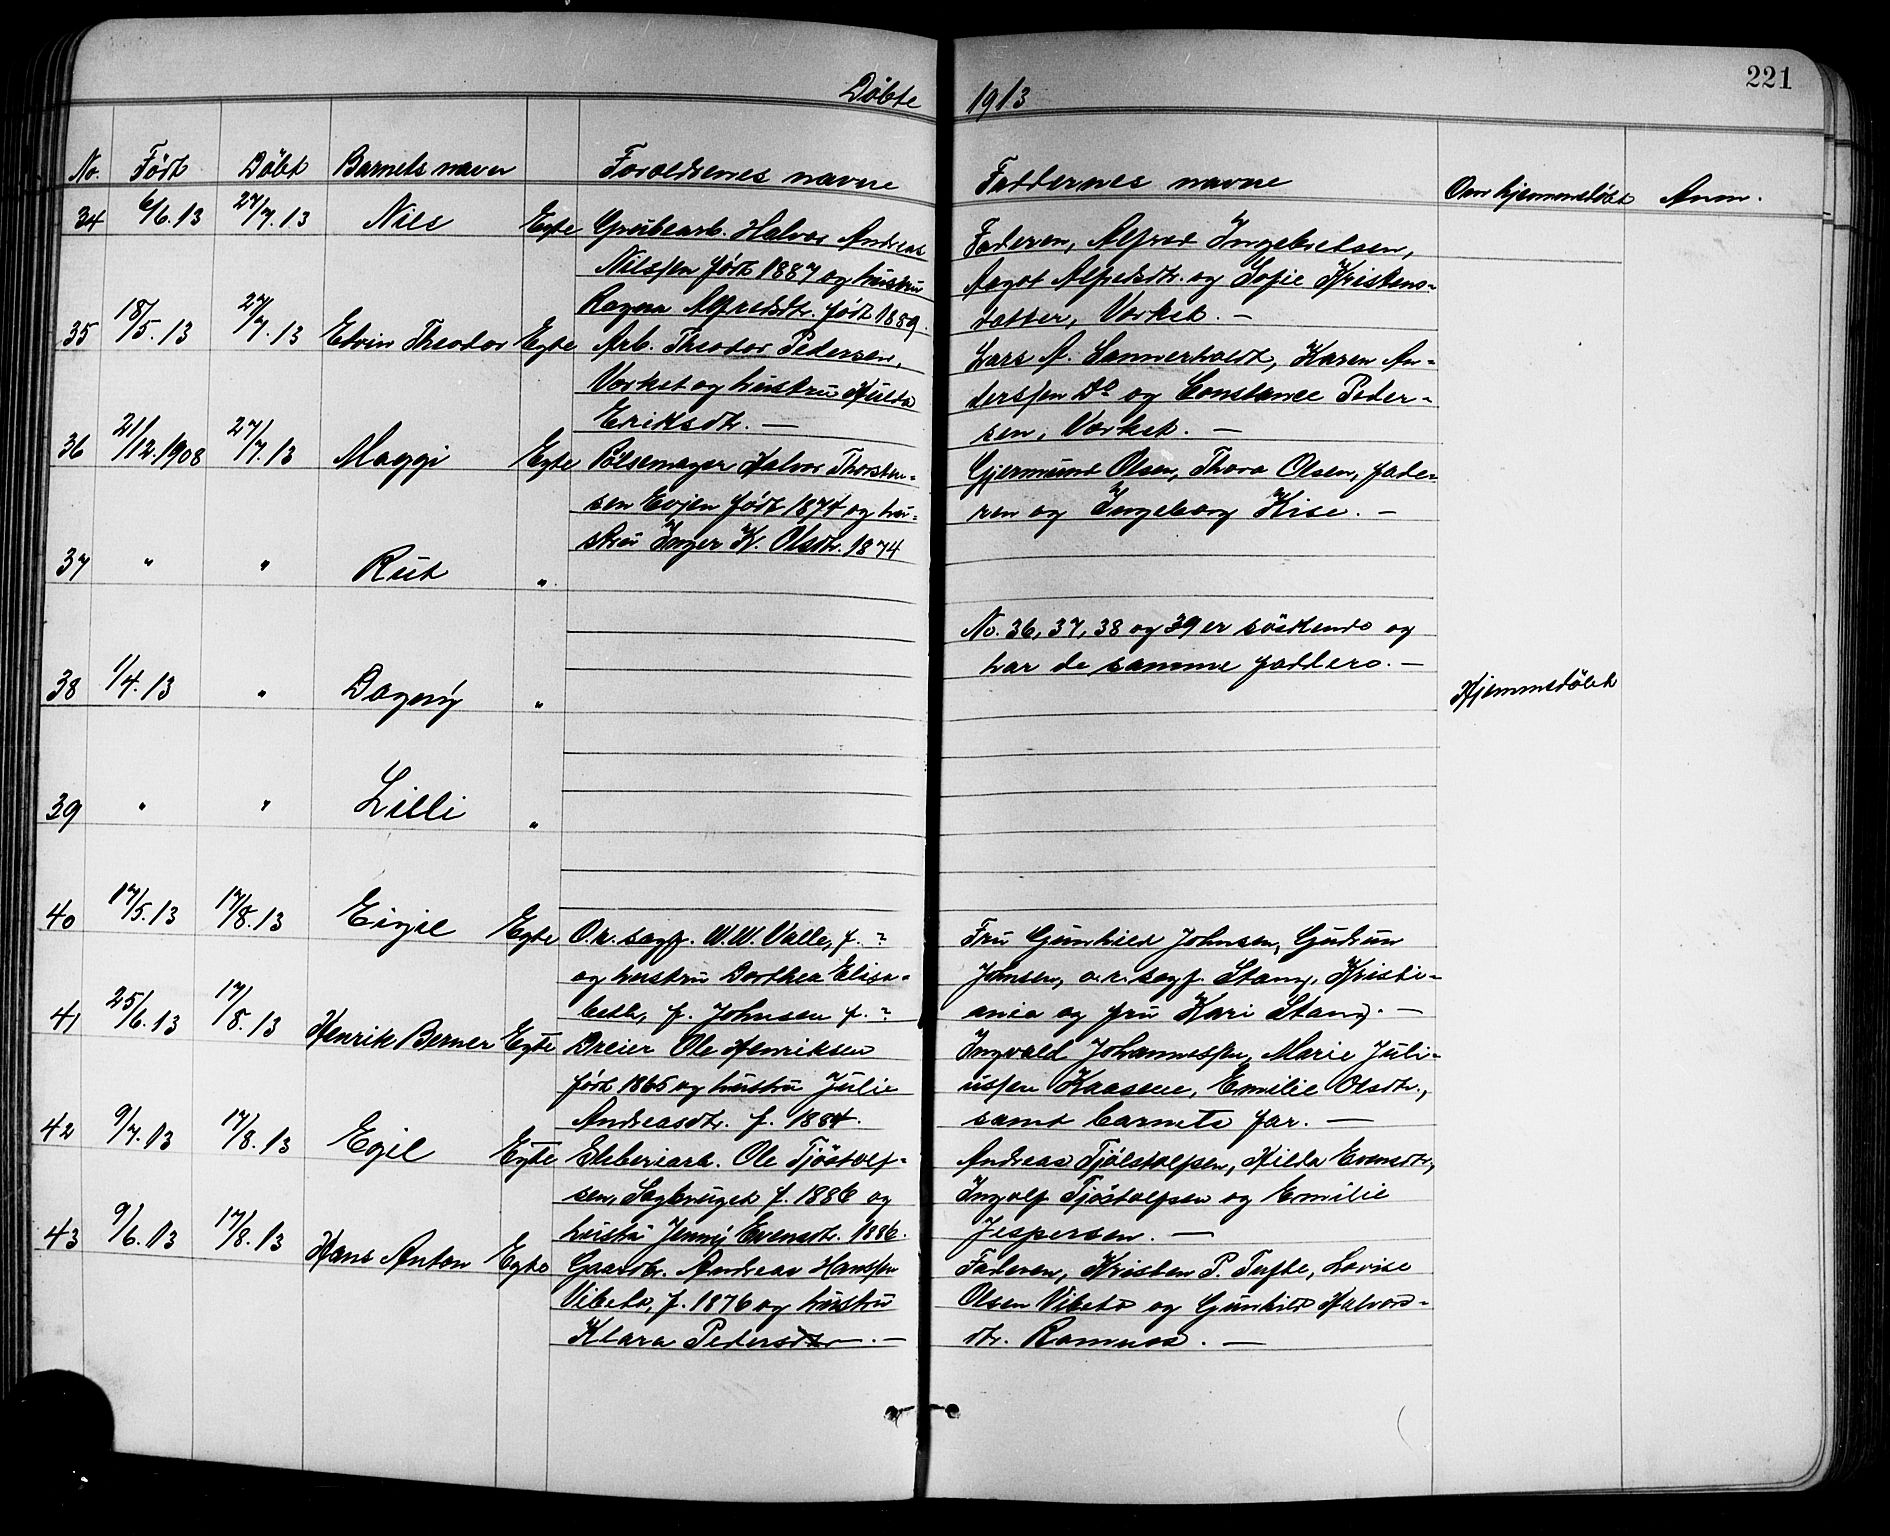 221
Döbte 1913
No. Födt Döbt Barnets navn Foreldrenes navne Faddernes navne Om hjemmedöbt Anm.
34 6/6.13 27/7.13 Nils Egte Grubearb. Halvor Andreas
Nilssen födt 1887 og hustru
Ragna Alfredsdtr. födt 1889.
Faderen, Alfred Ingebretsen,
Aagot Alfredsdtr. og Sofie Kristens-
datter, Verket. —
35 18/5.13 27/7.13 Edvin Theodor Egte Arb. Theodor Pedersen,
Verket og hustru Hulda
Eriksdtr. —
Lars A. Sannerholdt, Karen An-
derssen Do og Constance Peder-
sen, Verket. —
36 21/12.1908 27/7.13 Maggi Egte Pölsemager Halvor Thorsten-
sen Evjen födt 1874 og hu-
stru Inger K. Olsdtr. 1874
Gjermund Olsen, Thora Olsen, fade-
ren og Ingeborg Kise. —
37 " " Rut "
No. 36, 37, 38 og 39 er söskende og
har de samme faddere. —
38 1/4.13 " Dagny " Hjemmedöbt
39 " " Lilli "
40 17/5.13 17/8.13 Eigil Egte O.r. sagf. W.W. Valle, f. ?
og hustru Dorthea Elisa-
beth, f. Johnsen f. ?
Fru Gunhild Johnsen, Gudrun
Johnsen, o.r. sagf. Stang, Kristi-
ania og fru Kari Stang. —
41 25/6.13 17/8.13 Henrik Berner Egte Dreier Ole Henriksen
födt 1865 og hustru Julie
Andreasdtr. f. 1884.
Ingvald Johannessen, Marie Juli-
ussen Kaasene, Emilie Olsdtr.,
samt barnets far. —
42 9/7.13 17/8.13 Egil Egte Sliberiarb. Ole Tjöstolf-
sen, Sagbruget f. 1886 og
hustru Jenny Evensdtr. 1886.
Andreas Tjölstolfsen, Hilda Evensdtr,
Ingolf Tjöstolfsen og Emilie
Jespersen. —
43 9/6.13 17/8.13 Hans Anton Egte Gaardbr. Andreas Hanssen
Vibeto, f. 1876 og hustru
Klara Pedersdtr. —
Faderen, Kristen P. Tufte, Lovise
Olsen Vibeto og Gunhild Halvors-
dtr. Ramnes. —